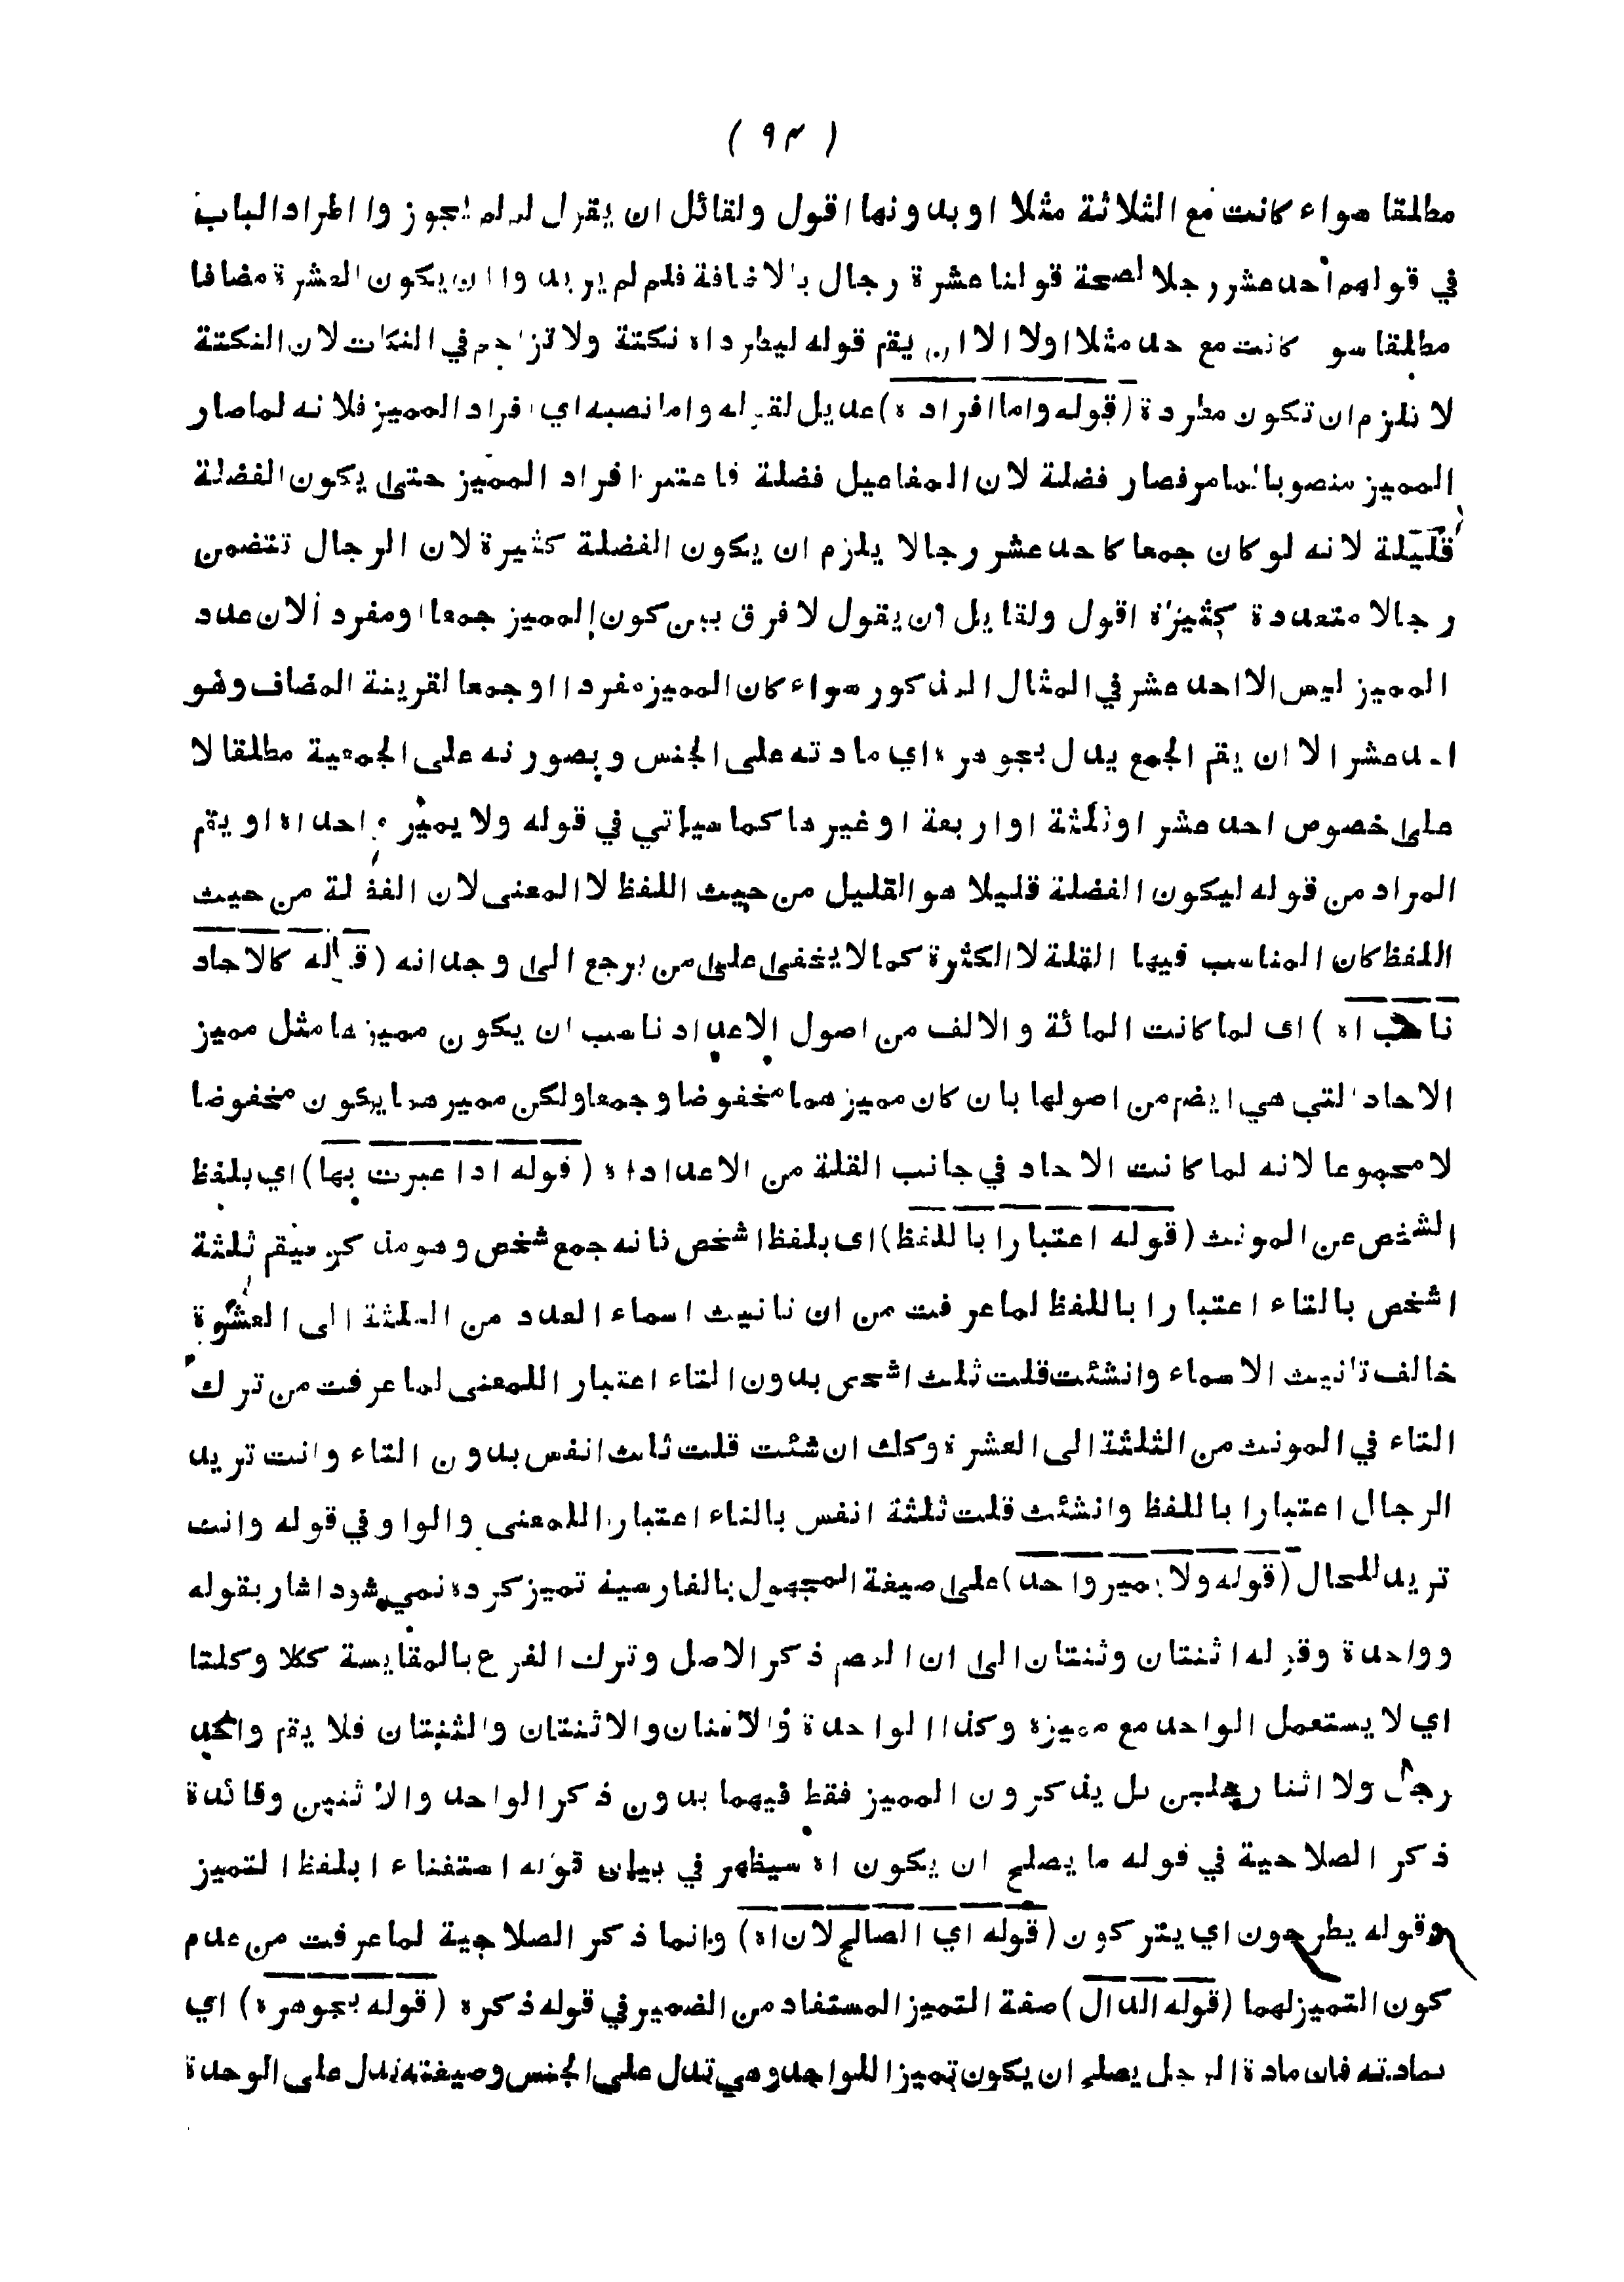 ( ٩٣ )
مطلقا سواء كانت مع الثلاثة مثلا او بدونها اقول ولقائل ان يقول لم لم يجوزوا اطراد الباب
في قولهم احد عشر رجلا لصحة قولنا عشرة رجال بالاضافة فلم لم يريدوا ان يكون العشرة مضافا
مطلقا سو كانت مع حد مثلا اولا الا ان يقم قوله ليطرد اه نكتة ولا تزاحم في النكات لان النكتة
لا نلزم ان تكون مطردة (قوله واما افراده) عديل لقوله واما نصبه اي افراد المميز فلانه لما صار
المميز منصوبا لما مر فصار فضلة لان المفاعيل فضلة فاعتبر افراد المميز حتى يكون الفضلة
قليلة لانه لو كان جمعا كاحد عشر رجالا يلزم ان يكون الفضلة كثيرة لان الرجال تتضمن
رجالا متعددة كثيرة اقول ولقايل ان يقول لا فرق بين كون المميز جمعا او مفردا لان عدد
المميز ليس الا احد عشر في المثال المذكور سواء كان المميز مفردا او جمعا لقرينة المضاف وهو
احد عشر الا ان يقم الجمع يدل بجوهره اي مادته على الجنس وبصورته على الجمعية مطلقا لا
على خصوص احد عشر او ثلثة او اربعة او غيرها كما سياتي في قوله ولا يميز واحد اه او يقم
المراد من قوله ليكون الفضلة قليلا هو القليل من حيث اللفظ لا المعنى لان الفضلة من حيث
اللفظ كان المناسب فيها القلة لا الكثرة كما لا يخفى على من يرجع الى وجدانه (قوله كالاحاد
ناسب اه) اى لما كانت المائة والالف من اصول الاعداد ناسب ان يكون مميزها مثل مميز
الاحاد التي هي ايضم من اصولها بان كان مميزهما مخفوضا وجمعا ولكن مميزهما يكون مخفوضا
لا مجموعا لانه لما كانت الاحاد في جانب القلة من الاعداد اه (قوله اذا عبرت بها) اي بلفظ
الشخص عن المونث (قوله اعتبارا باللفظ) اى بلفظ اشخص فانه جمع شخص وهو مذكر فيقم ثلثة
اشخص بالتاء اعتبارا باللفظ لما عرفت من ان تانيث اسماء العدد من الثلثة الى العشرة
خالف تانيث الاسماء وانشئت قلت ثلث اشخص بدون التاء اعتبار اللمعنى لما عرفت من ترك
التاء في المونث من الثلثة الى العشرة وكك ان شئت قلت ثلث انفس بدون التاء وانت تريد
الرجال اعتبارا باللفظ وانشئت قلت ثلثة انفس بالتاء اعتبار اللمعنى والواو في قوله وانت
تريد للحال (قوله ولا يميز واحد) على صيغة المجهول بالفارسية تميز كرده نمي شود اشار بقوله
وواحدة وقوله اثنتان وثنتان الى ان المصم ذكر الاصل وترك الفرع بالمقايسة ككلا وكلتا
اي لا يستعمل الواحد مع مميزه وكذا الواحدة والاثنان والاثنتان والثنتان فلا يقم واحد
رجل ولا اثنا رجلين بل يذكرون المميز فقط فيهما بدون ذكر الواحد والاثنين وفائدة
ذكر الصلاحية في قوله ما يصلح ان يكون اه سيظهر في بيان قوله استغناء ا بلفظ التميز
وقوله يطرحون اي يتركون (قوله اي الصالح لان اه) وانما ذكر الصلاحية لما عرفت من عدم
كون التميز لهما (قوله الدال) صفة التميز المستفاد من الضمير في قوله ذكره (قوله بجوهره) اي
بمادته فان مادة الرجل يصلح ان يكون تميزا للواحد وهي تدل على الجنس وصيغته تدل على الوحدة